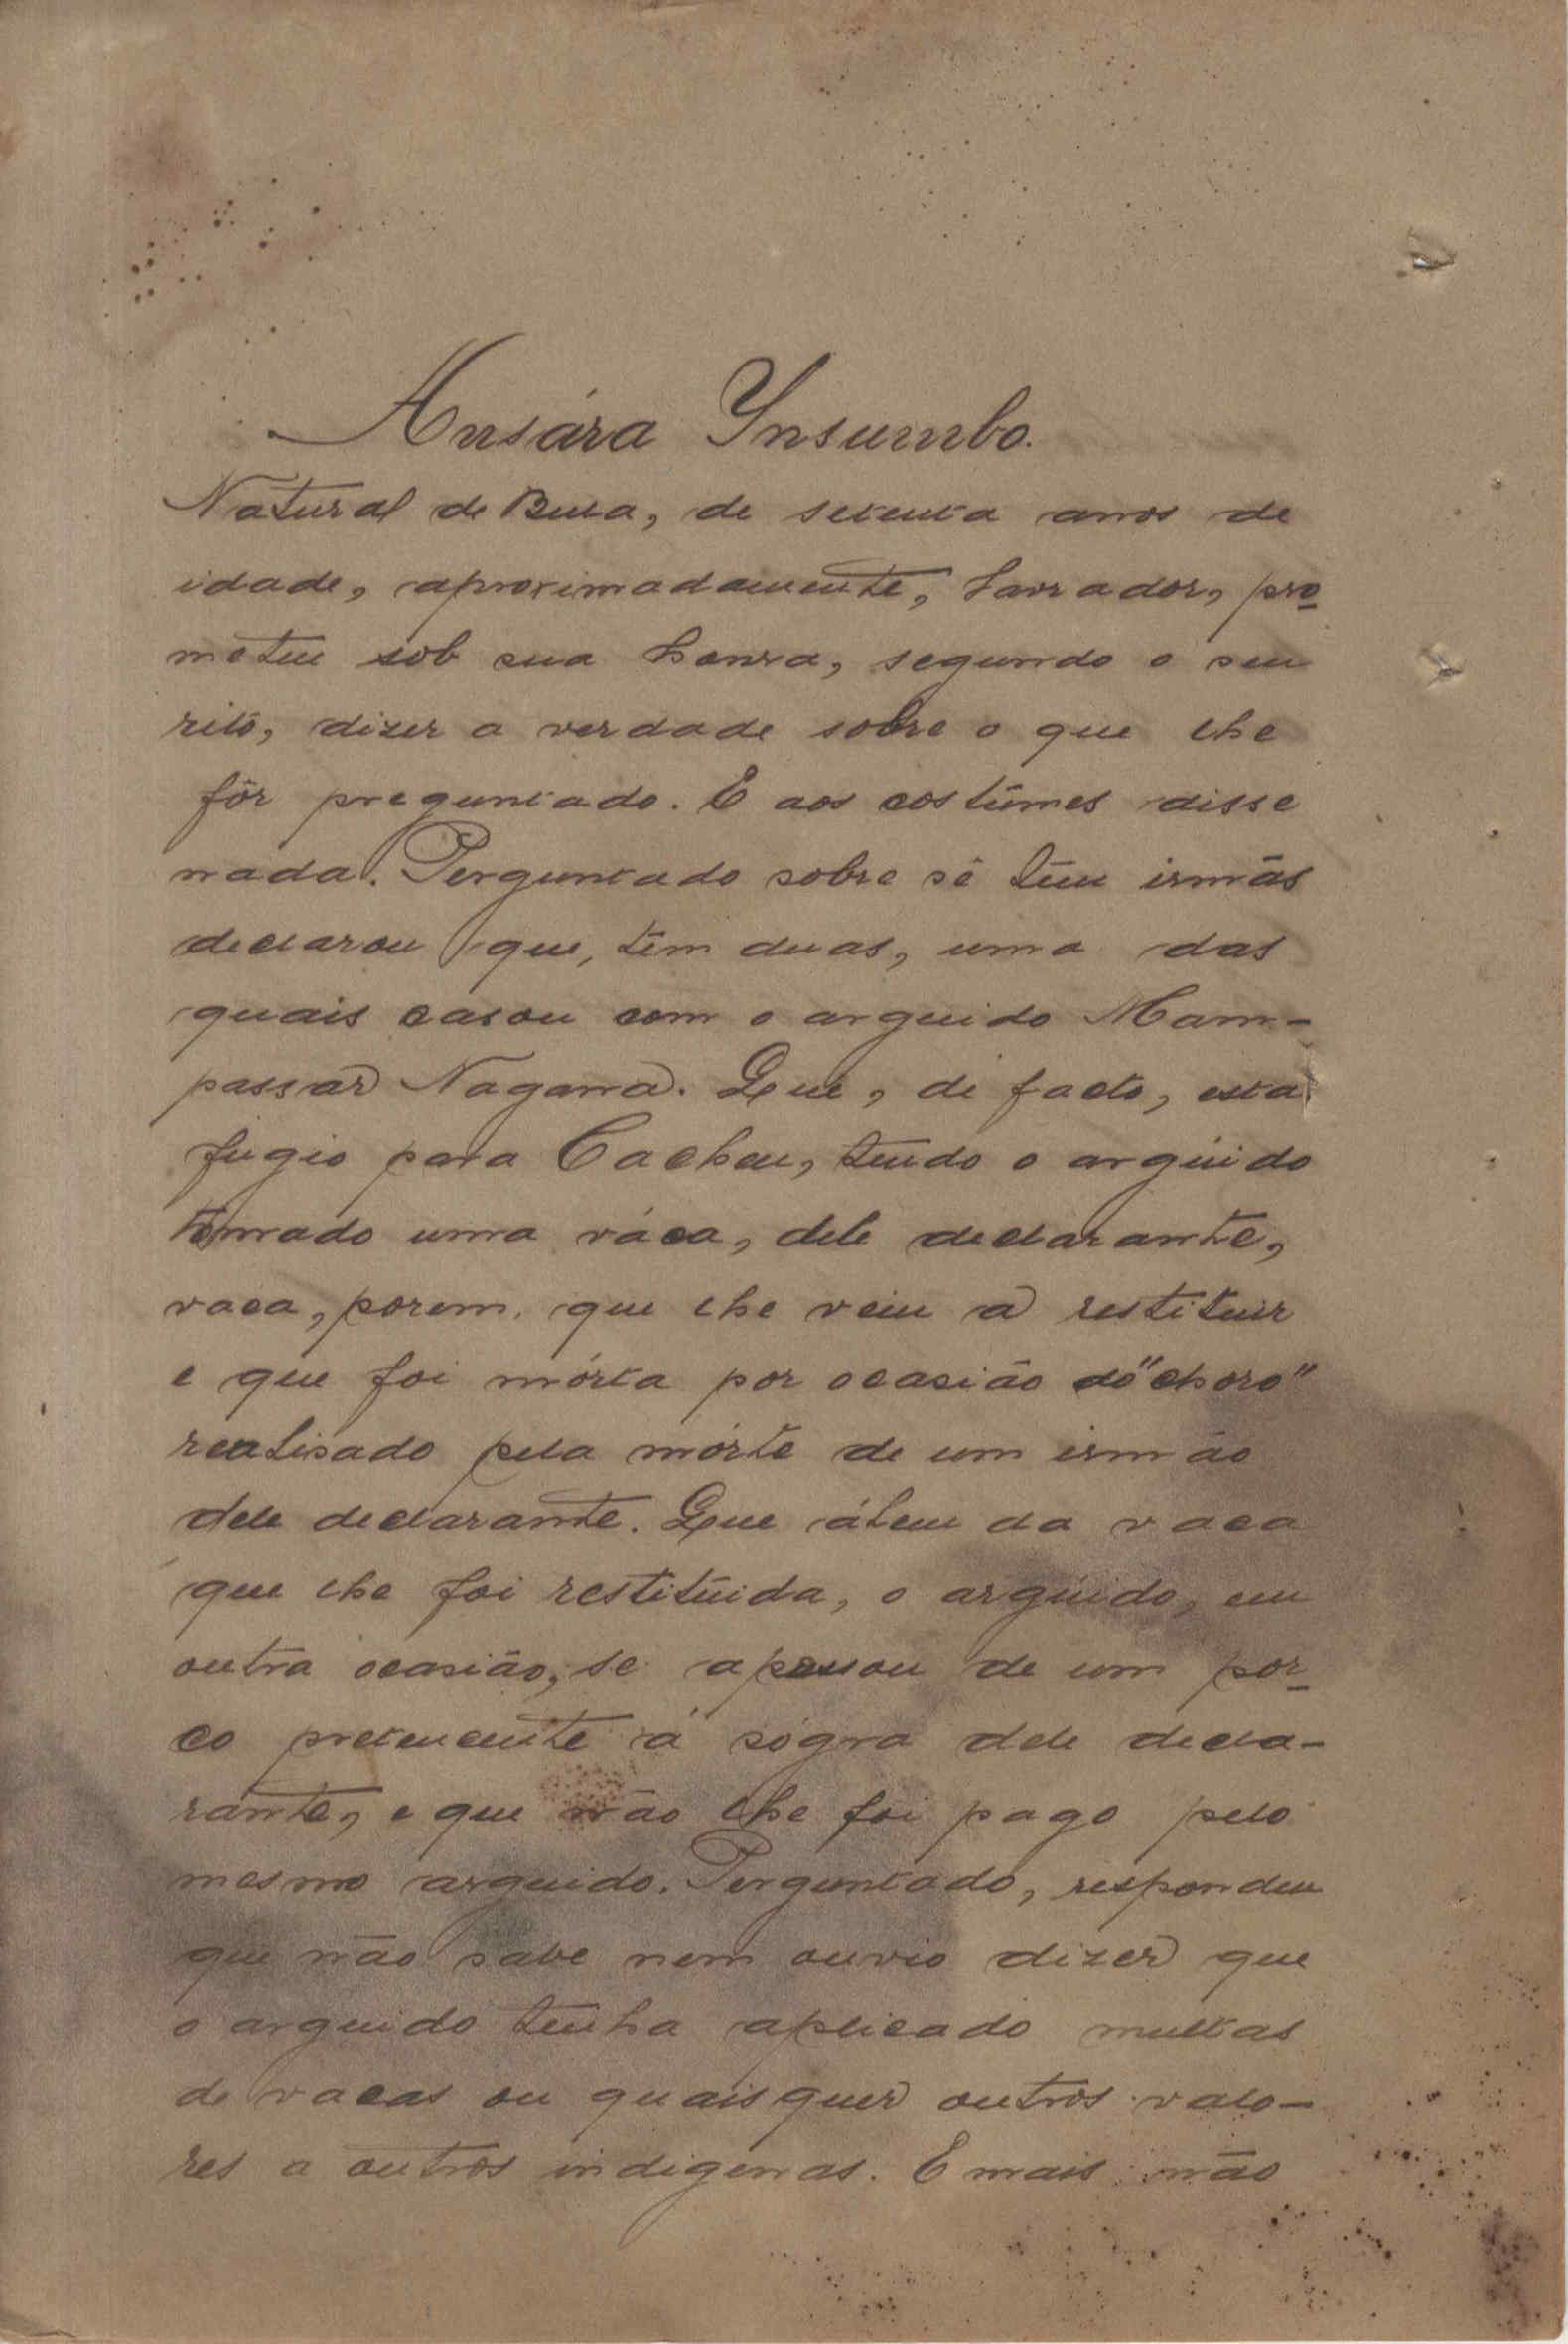 Ansára Ynsumbo.
Natural de Bula, de setenta anos de
idade, aproximadamente, lavrador, pro-
meteu sob sua honra, segundo o seu
rito, dizer a verdade sobre o que lhe
fôr preguntado. E aos costúmes disse
nada. Perguntado sobre sê têm irmãs
declarou que, têm duas, uma das
quais casou com o arguido Mam-
passar Nagana. Que, de facto, esta
fugio para Cacheu, tendo o argúido
tomado uma váca, dele declarante,
vaca, porem, que lhe veiu a restituir
e que foi mórta por ocasião do "choro"
realisado pela mórte de um irmão
dele declarante. Que álem da vaca
que lhe foi restitúida, o argúido, em
outra ocasião, se apossou de um por-
co pretencente á sógra dele decla-
rante, e que não lhe foi pago pelo
mesmo arguido. Perguntado, respondeu
que não sabe nem ouvio dizer que
o arguido tenha aplicado multas
de vacas ou quaisquer outros valo-
res a outros indigenas. E mais não